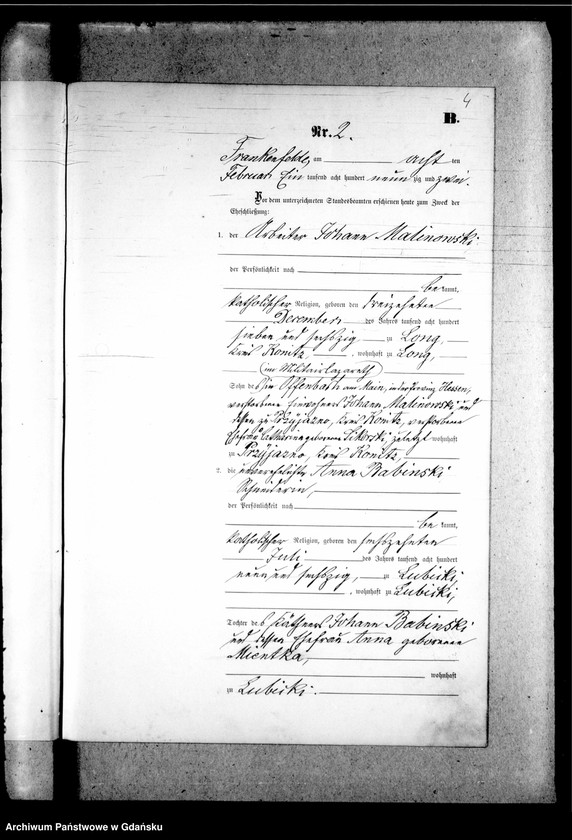 4
B.
Nr. 2.
Frankenfelde, am acht ten
Februar Ein tausend acht hundert neun zig und zwei.
Vor dem unterzeichneten Standesbeamten erschienen heute zum Zweck der
Eheschließung:
1. der Arbeiter Johann Malinowski
der Persönlichkeit nach
be kannt,
katholischer Religion, geboren den dreizehnten
December des Jahres tausend acht hundert
sieben und sechszig zu Long,
Kreis Konitz, wohnhaft zu Long,
(im Militairlazareth)
Sohn des zu Offenbach am Main, Hessen,
verstorbenen Einwohners Johann Malinowski und
dessen zu Przyjazno, Kreis Konitz, verstorbene
Ehefrau Catharina geborene Sikorski, zuletzt wohnhaft
zu Przyjazno, Kreis Konitz,
2. die unverehelichte Anna Babinski
Schneiderin,
der Persönlichkeit nach
be kannt,
katholischer Religion, geboren den sechszehnten
Juli des Jahres tausend acht hundert
neun und sechszig, zu Lubicki,
wohnhaft zu Lubicki,
Tochter des Käthners Johann Babinski
und dessen Ehefrau Anna geborenen
Mientka,
wohnhaft
zu Lubicki.
Archiwum Państwowe w Gdańsku